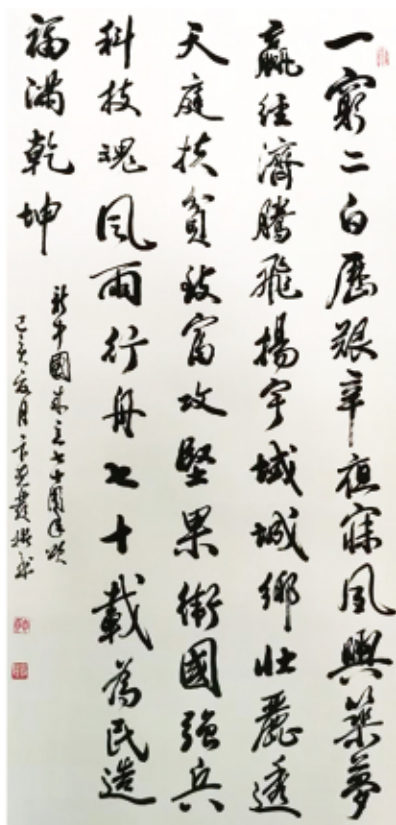 一窮二白歷艱辛夜寐夙興築夢
贏經濟騰飛揚宇域城鄉壯麗透
天庭扶貧致富攻堅果衛國強兵
科技魂風雨行舟七十載為民造
福滿乾坤
新中國成立七十周年頌
己亥夏月